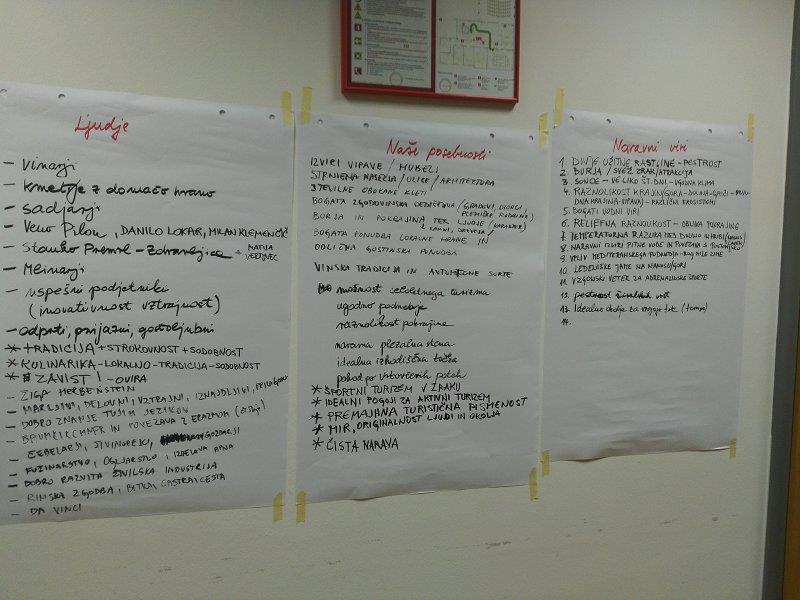 Ljudje
- vinarji
- kmetije z domačo hrano
- sadjarji
- Veno Pilon, DANILO LOKAR, MILAN KLEMENČIČ
- Stanko Premrl - Zdravljica + MATIJA VERTOVEC
- Mlinarji
- uspešni podjetniki
(inovativnost vztrajnost)
- odprti, prijazni, gostoljubni
* TRADICIJA + STROKOVNOST + SODOBNOST
* KULINARIKA - LOKALNO - TRADICIJA - SODOBNOST
* ZAVIST! - OVIRA
- ŽIGA HERBERSTEIN
- MARLJIVI, DELOVNI, VZTRAJNI, IZNAJDLJIVI
- DOBRO ZNANJE TUJIH JEZIKOV
- IN POVEZAVA Z ERAZMOM
- ČEBELARJI, ŽIVINOREJCI, GOZDARJI
- FUŽINARSTVO, OGLJARSTVO, IZDELAVA APNA
- DOBRO RAZVITA ŽIVILSKA INDUSTRIJA
- RIMSKA ZGODBA, BITKA, CASTRA, CESTA
- DA VINCI
Naši posebnosti
IZVIRI VIPAVE / HUBELJ
STRNJENA NASELJA / ULICE / ARHITEKTURA
ŠTEVILNE OBOKANE KLETI
BOGATA ZGODOVINSKA DEDIŠČINA (GRADOVI, DVORCI,
PLEMIŠKE RODBINE)
BURJA IN POKRAJINA TER LJUDJE
BOGATA PONUDBA LOKALNE HRANE IN
ODLIČNA GOSTINSKA PONUDBA
VINSKA TRADICIJA IN AVTOHTONE SORTE
možnost celoletnega turizma
ugodno podnebje
raznolikost pokrajine
naravna plezalna stena
idealna izhodiščna točka
pohod po Vrtovčevih poteh
* ŠPORTNI TURIZEM V ZRAKU
* IDEALNI POGOJI ZA AKTIVNI TURIZEM
* PREMAJHNA TURISTIČNA PISMENOST
* MIR, ORIGINALNOST LJUDI IN OKOLJA
* ČISTA NARAVA
Naravni viri
1. DIVJE UŽITNE RASTLINE - PESTROST
2. BURJA / SVEŽ ZRAK / ATRAKCIJA
3. SONCE - VELIKO ŠT. DNI - UGODNA KLIMA
4. RAZNOLIKOST KRAJIN (GORA - DOLINA - GRIČI -
DNA KRAJINA - VIPAVA) - RAZLIČNI EKOSISTEMI
5. BOGATI VODNI VIRI
6. RELIEFNA RAZNOLIKOST - OBLIKA POKRAJINE
7. TEMPERATURNA RAZLIKA MED DOLINO IN HRIBI
8. NARAVNI IZVIRI PITNE VODE IN POVEZAVA S
9. VPLIV MEDITERANSKEGA PODNEBJA - BOLJ MILE ZIME
10. LEDENIŠKE JAME NA NANOSU / GORI
11. VZGONSKI VETER ZA ADRENALINSKE ŠPORTE
12. pestrost vrst
13. Idealno okolje za vzgojo
14.